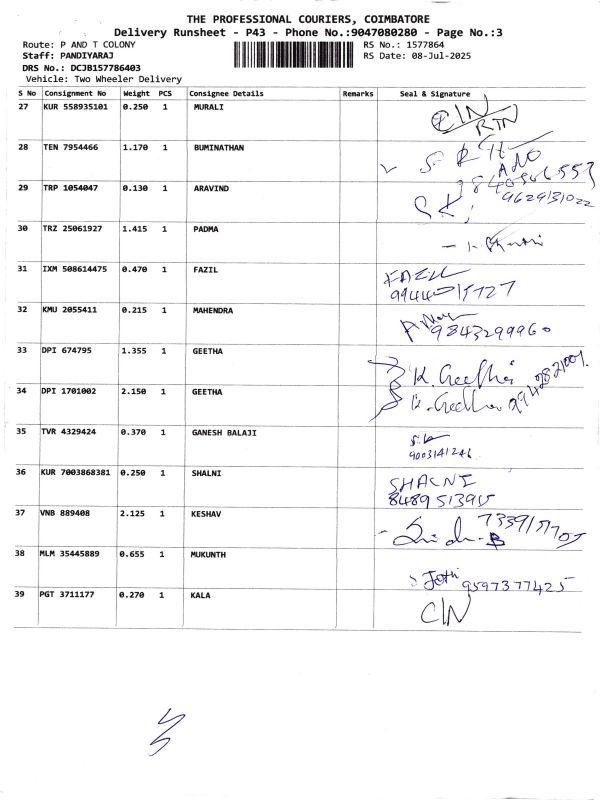 THE PROFESSIONAL COURIERS, COIMBATORE
Delivery Runsheet - P43 - Phone No.:9047080280 - Page No.:3
Route: P AND T COLONY RS No.: 1577864
Staff: PANDIYARAJ RS Date: 08-Jul-2025
DRS No.: DCJB157786403
Vehicle: Two Wheeler Delivery
S No Consignment No Weight PCS Consignee Details Remarks Seal & Signature
27 KUR 558935101 0.250 1 MURALI C/N RTN
28 TEN 7954466 1.170 1 BUMINATHAN
29 TRP 1054047 0.130 1 ARAVIND 9629131022
30 TRZ 25061927 1.415 1 PADMA
31 IXM 508614475 0.470 1 FAZIL FAZIL
32 KMU 2055411 0.215 1 MAHENDRA 9843299960
33 DPI 674795 1.355 1 GEETHA K. Geetha
34 DPI 1701002 2.150 1 GEETHA K. Geetha
35 TVR 4329424 0.370 1 GANESH BALAJI
9003141246
36 KUR 7003868381 0.250 1 SHALNI SHALNI
8489513915
37 VNB 889408 2.125 1 KESHAV
38 MLM 35445889 0.655 1 MUKUNTH Jothi 9597377425
39 PGT 3711177 0.270 1 KALA C/N